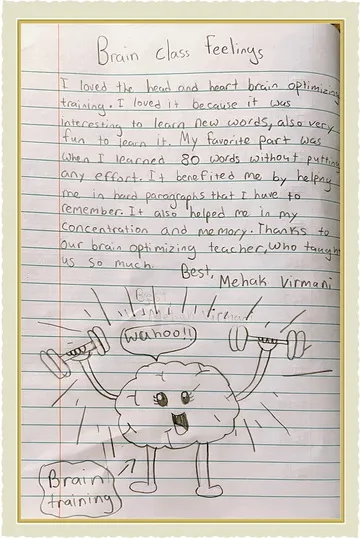 Brain Class Feelings
I loved the head and heart brain optimizing
training. I loved it because it was
interesting to learn new words, also very
fun to learn it. My favorite part was
when I learned 80 words without putting
any effort. It benefited me by helping
me in hard paragraphs that I have to
remember. It also helped me in my
concentration and memory. Thanks to
our brain optimizing teacher, who taught
us so much.
Best,
Mehak Virmani
Wahoo!!
Brain
training